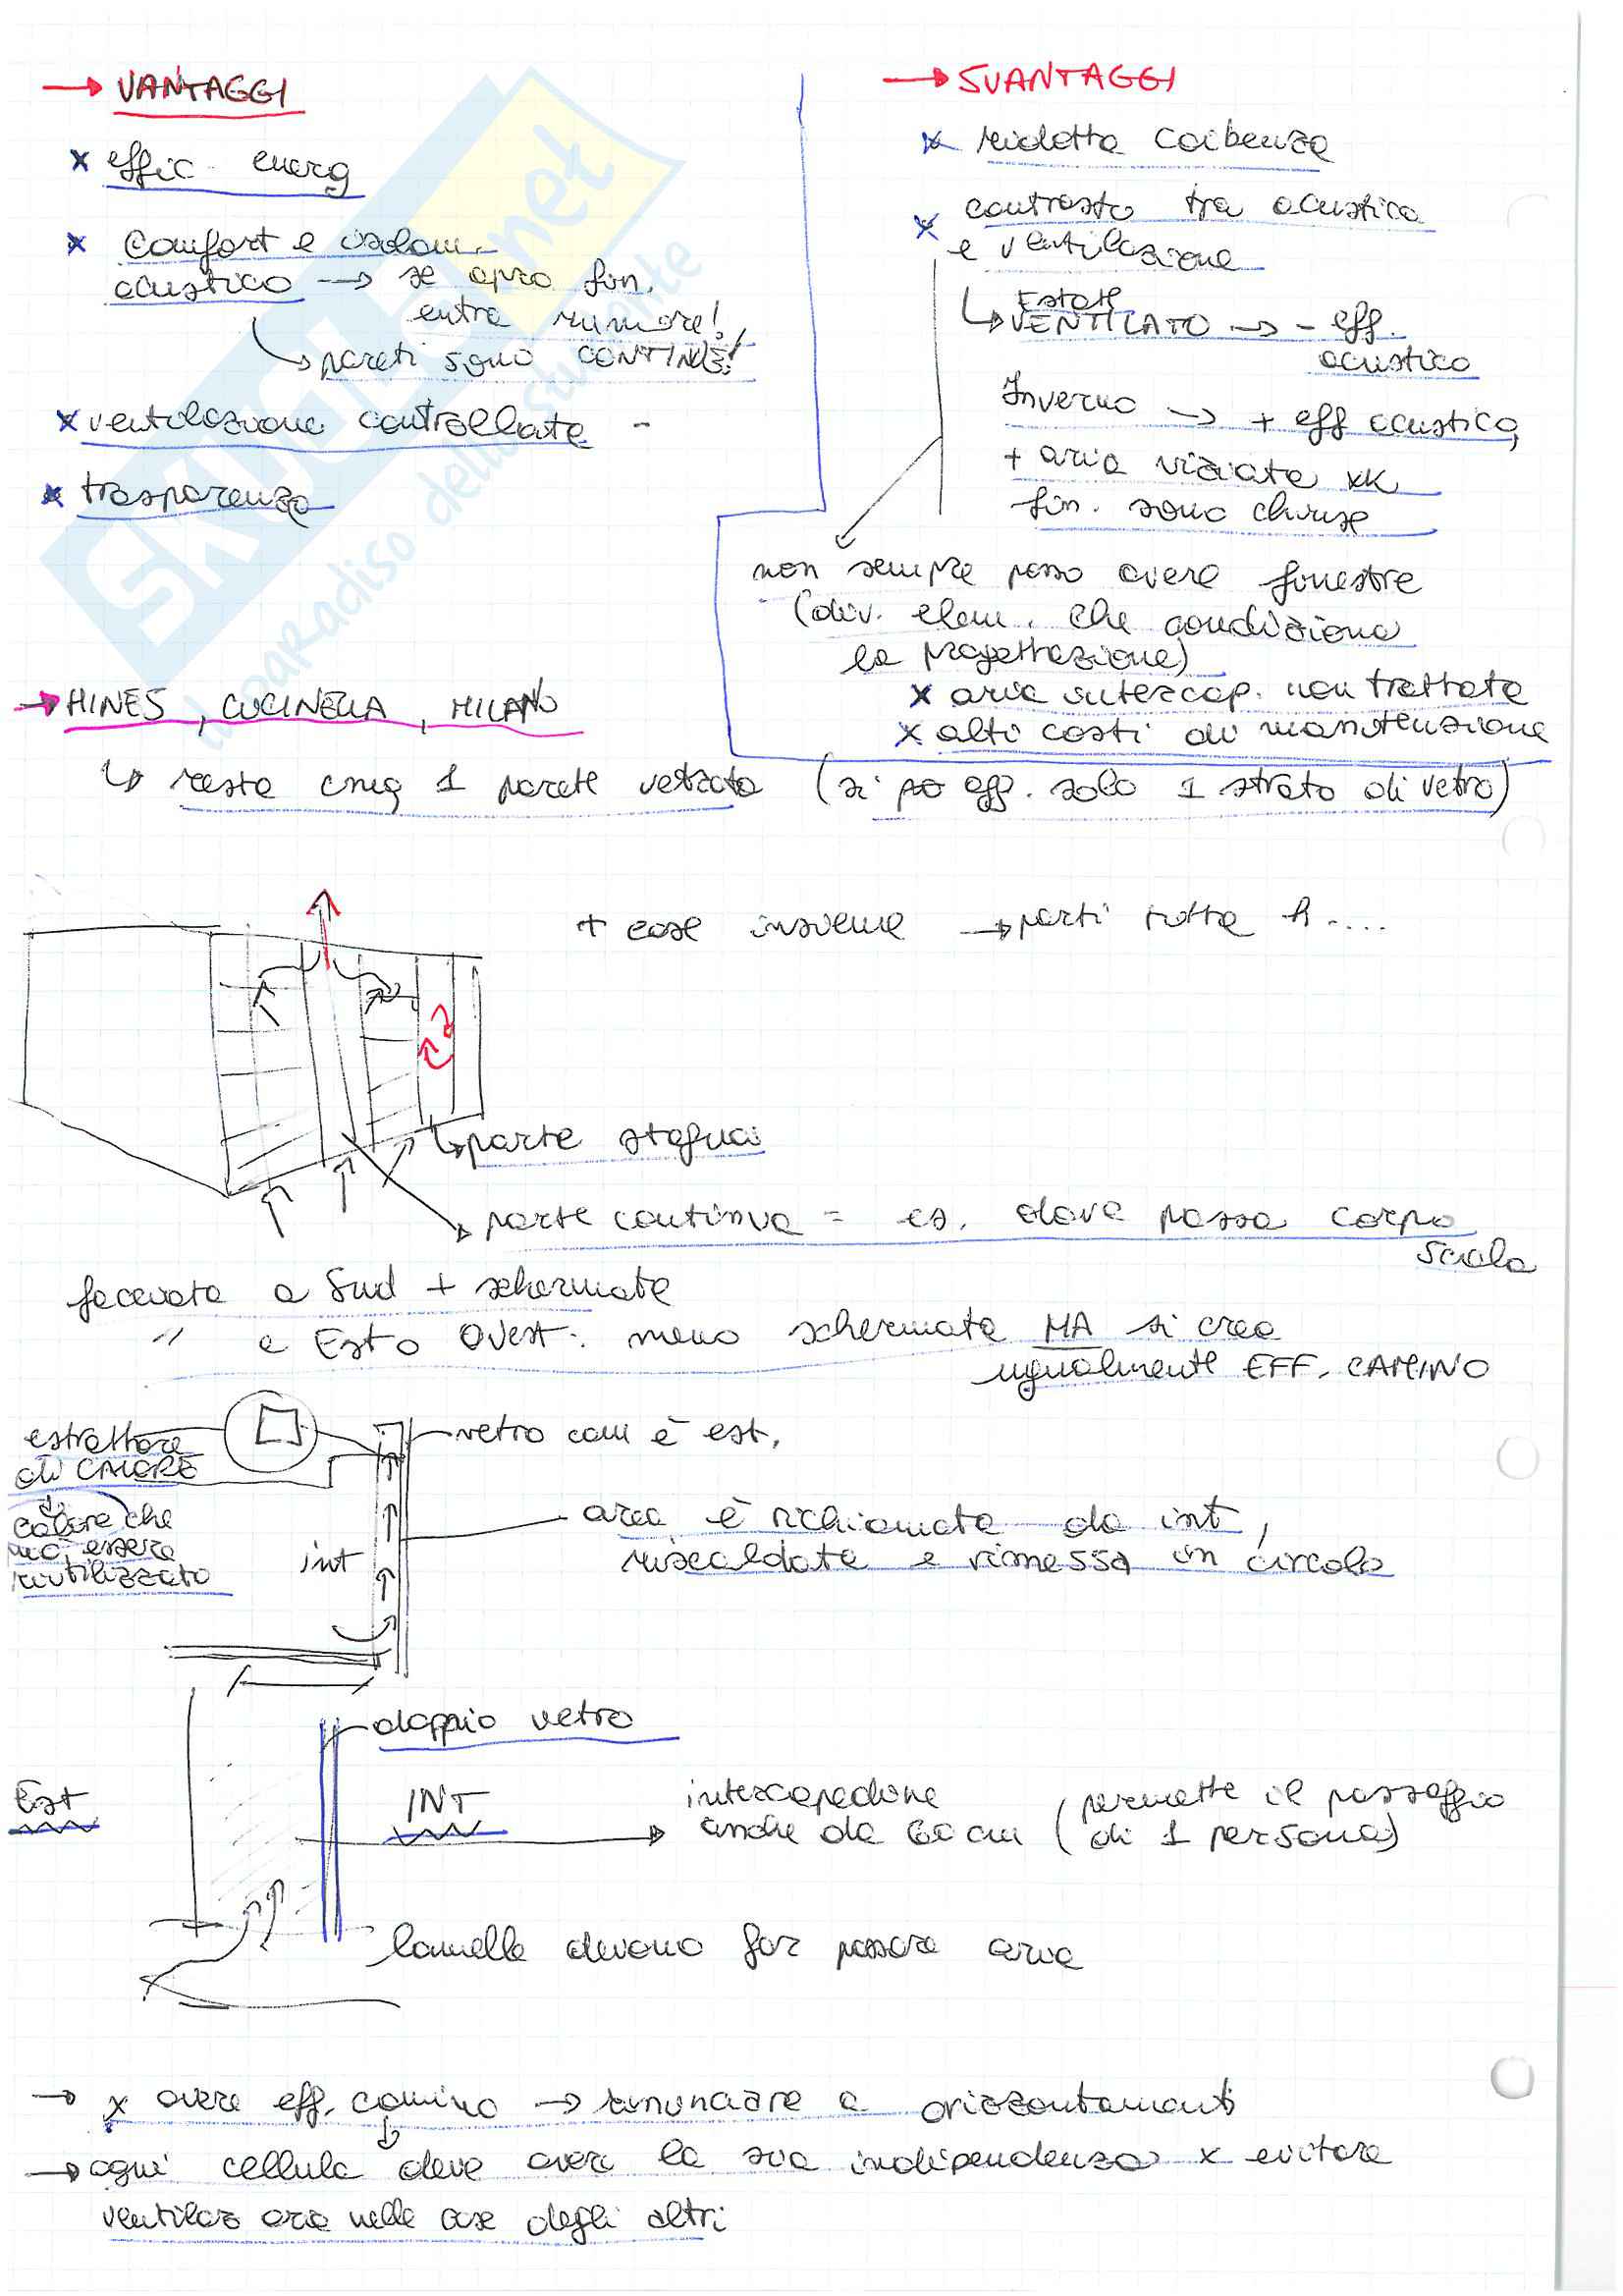 → VANTAGGI
x effic. energ
x Comfort e isolam.
acustico → se apro fin.
entra rumore!
↳ pareti sono CONTINUE!
x ventilazione controllata -
x trasparenza
→ SVANTAGGI
x ridotta coibenza
x contrasto tra acustica
e ventilazione
Estate
↳ VENTILATO → - eff.
acustico
Inverno → + eff acustico,
+ aria viziata xk
fin. sono chiuse
non sempre posso avere finestre
(div. elem. che condiziona
la progettazione)
x aria intercap. non trattata
x alti costi di manutenzione
→ HINES, CUCINELLA, MILANO
↳ resta cmq 1 parete vetrata (si può eff. solo 1 strato di vetro)
+ case insieme → parti tutta h....
↳ parte stagna
parte continua = es. dove passa corpo
scala
facciata a Sud + schermata
" a Est o Ovest: meno schermata MA si crea
ugualmente EFF. CAMINO
estrattore
di CALORE
calore che
può essere
riutilizzato
vetro com'è est.
int
aria è richiamata da int,
riscaldata e rimessa in circolo
doppio vetro
Est
INT
intercapedine
anche da 60 cm (permette il passaggio
di 1 persona)
lamelle devono far passare aria
→ x avere eff. camino → rinunciare a orizzontamenti
→ ogni cellula deve avere la sua indipendenza x evitare
ventilaz aria nelle case degli altri
SKUOLA.net
il paradiso dello studente